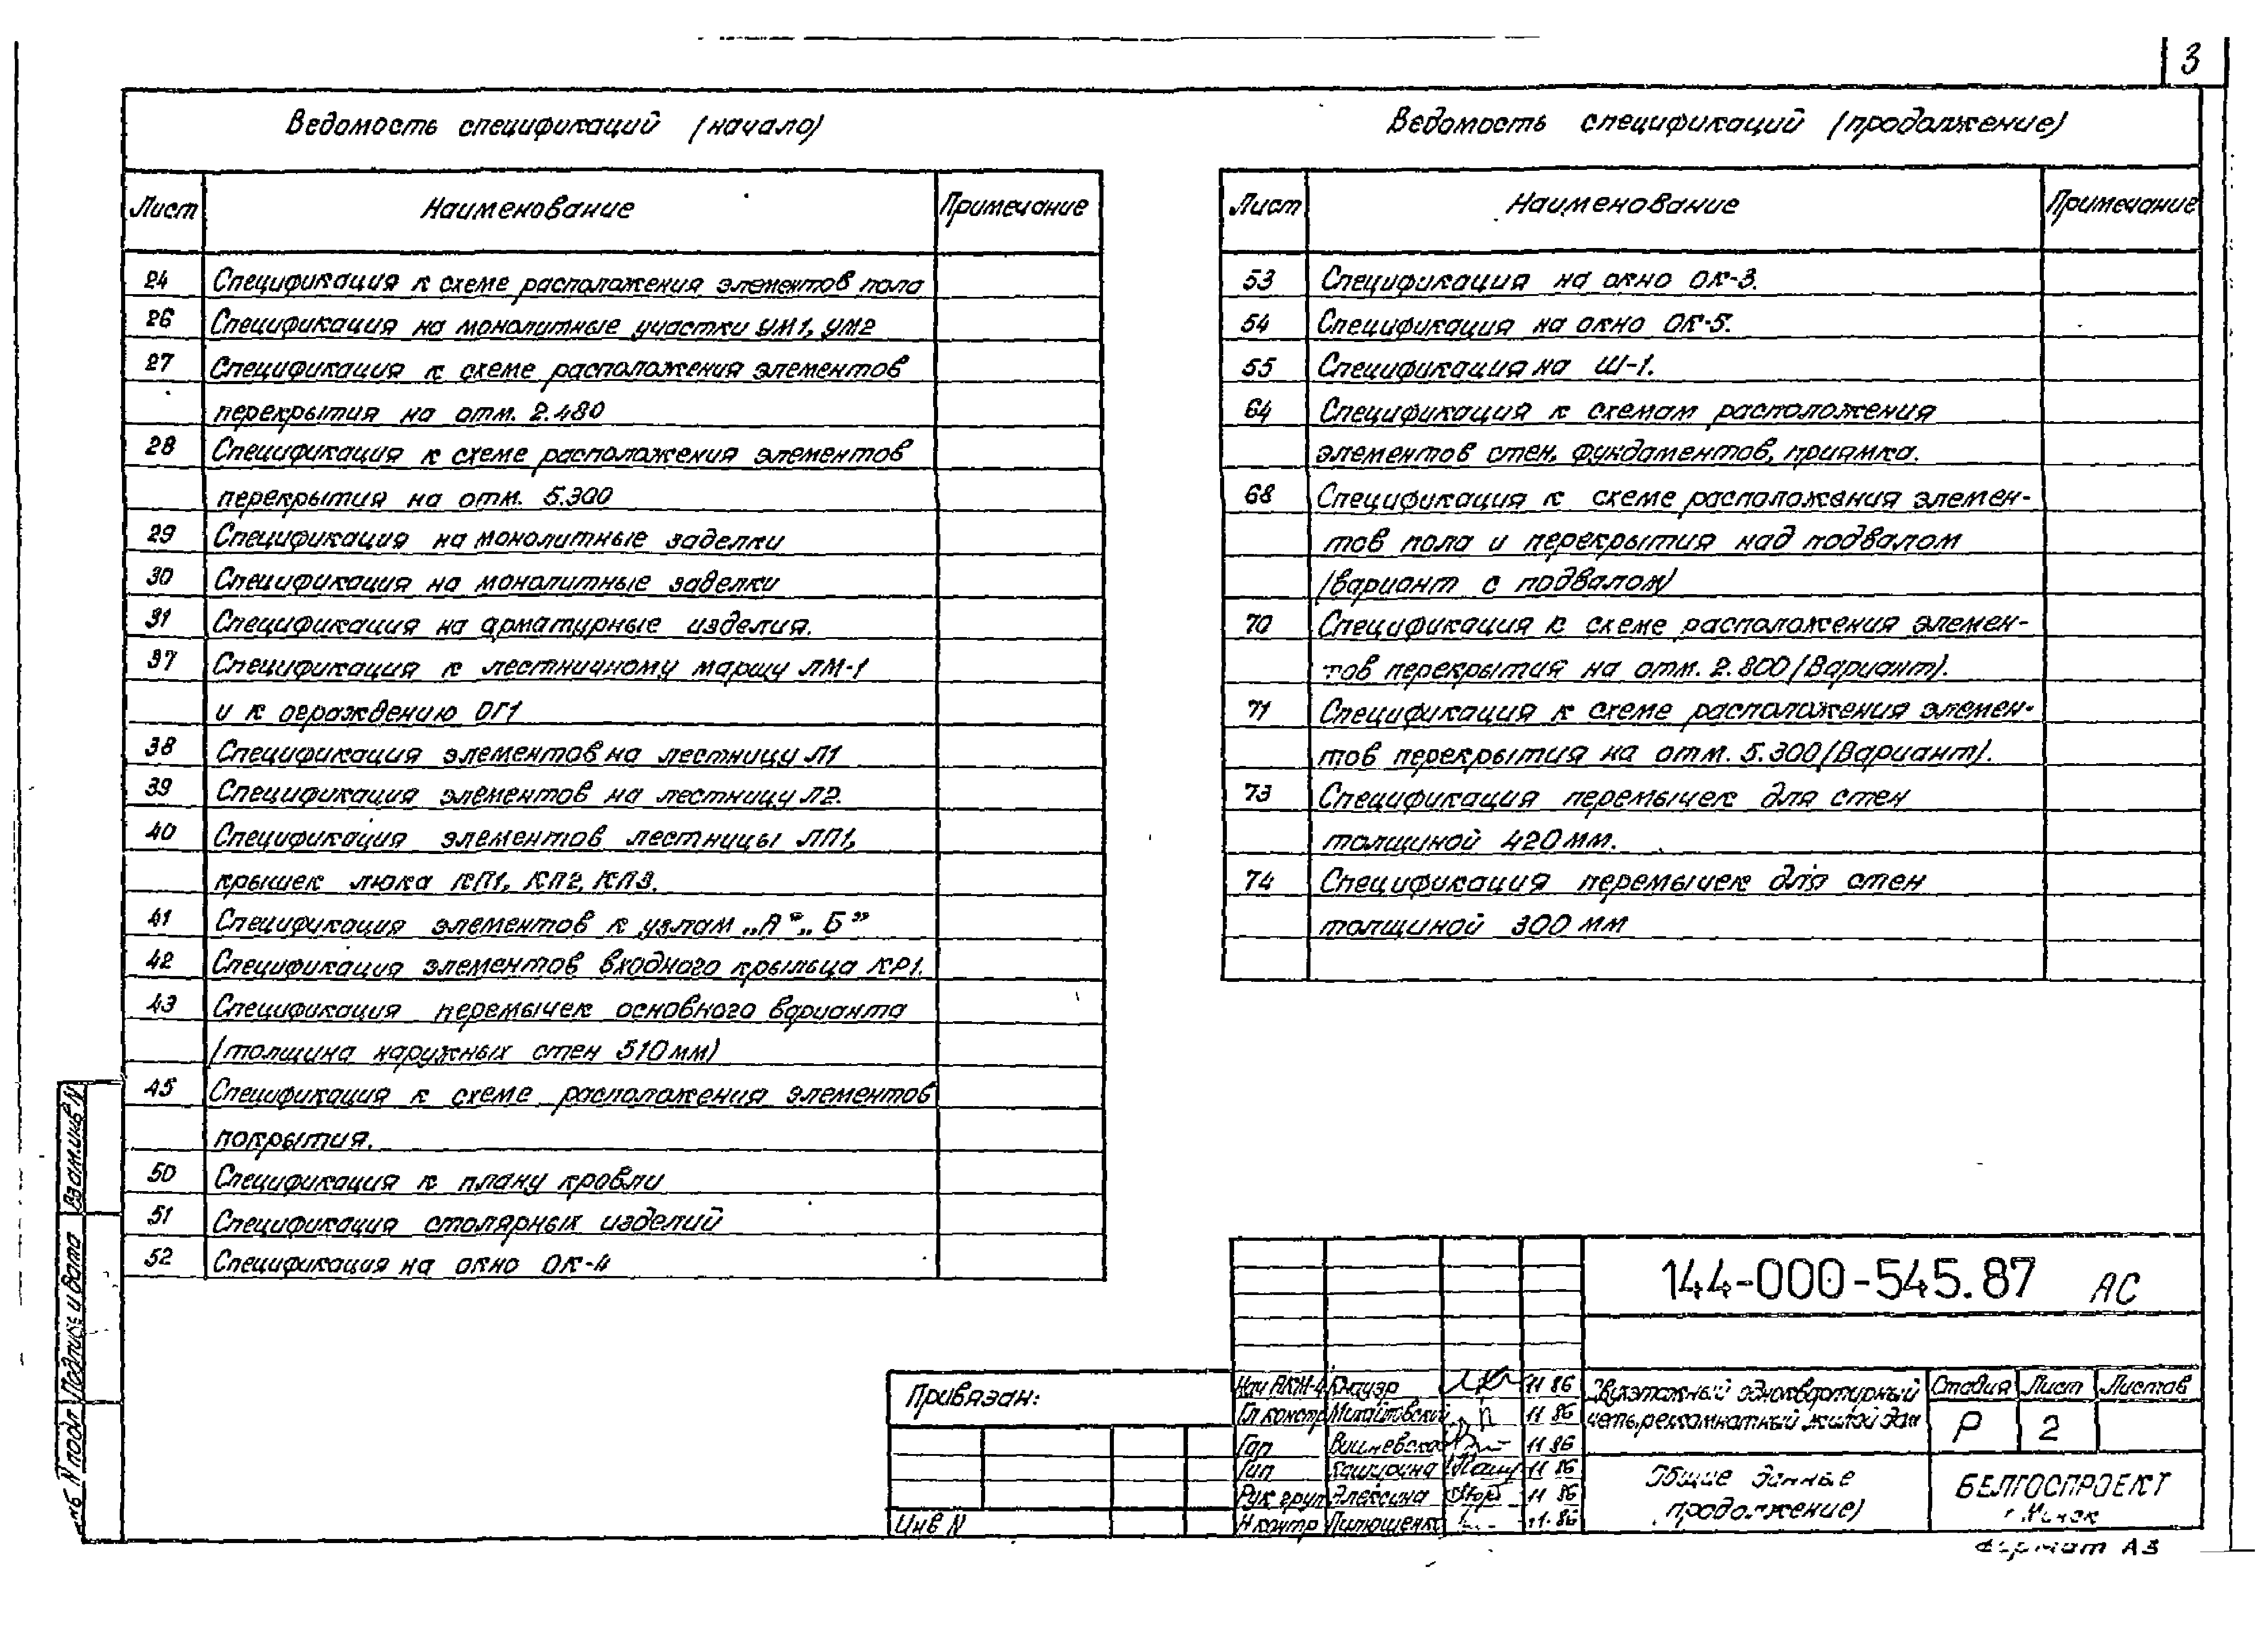 3
Ведомость спецификаций (начало)
Лист Наименование Примечание
24 Спецификация к схеме расположения элементов пола
26 Спецификация на монолитные участки УМ1, УМ2
27 Спецификация к схеме расположения элементов
перекрытия на отм. 2.480
28 Спецификация к схеме расположения элементов
перекрытия на отм. 5.300
29 Спецификация на монолитные заделки
30 Спецификация на монолитные заделки
31 Спецификация на арматурные изделия.
37 Спецификация к лестничному маршу ЛМ-1
и к ограждению ОГ1
38 Спецификация элементов на лестницу Л1
39 Спецификация элементов на лестницу Л2.
40 Спецификация элементов лестницы ЛП1,
крышек люка КЛ1, КЛ2, КЛ3.
41 Спецификация элементов к узлам „А", „Б"
42 Спецификация элементов входного крыльца КР1.
43 Спецификация перемычек основного варианта
(толщина наружных стен 510мм)
45 Спецификация к схеме расположения элементов
покрытия.
50 Спецификация к плану кровли
51 Спецификация столярных изделий
52 Спецификация на окно ОК-4
Ведомость спецификаций (продолжение)
Лист Наименование Примечание
53 Спецификация на окно ОК-3.
54 Спецификация на окно ОК-5.
55 Спецификация на Ш-1.
64 Спецификация к схемам расположения
элементов стен, фундаментов, приямка.
68 Спецификация к схеме расположения элемен-
тов пола и перекрытия над подвалом
(вариант с подвалом)
70 Спецификация к схеме расположения элемен-
тов перекрытия на отм. 2.800 (Вариант).
71 Спецификация к схеме расположения элемен-
тов перекрытия на отм. 5.300 (Вариант).
73 Спецификация перемычек для стен
толщиной 420 мм.
74 Спецификация перемычек для стен
толщиной 300 мм
Взам.инв N
Подпись и дата
Инв N подл
Привязан:
Инв N
144-000-545.87 АС
Нач АКМ-4 Кнауэр 11 86
Гл констр Михайловский 11 86
Гап Вишневская 11 86
Гип 11 86
Рук груп Алексина 11 86
Н контр 11.86
Двухэтажный одноквартирный
четырехкомнатный жилой дом
Стадия Лист Листов
Р 2
Общие данные
(продолжение)
БЕЛГОСПРОЕКТ
г Минск
Формат А3